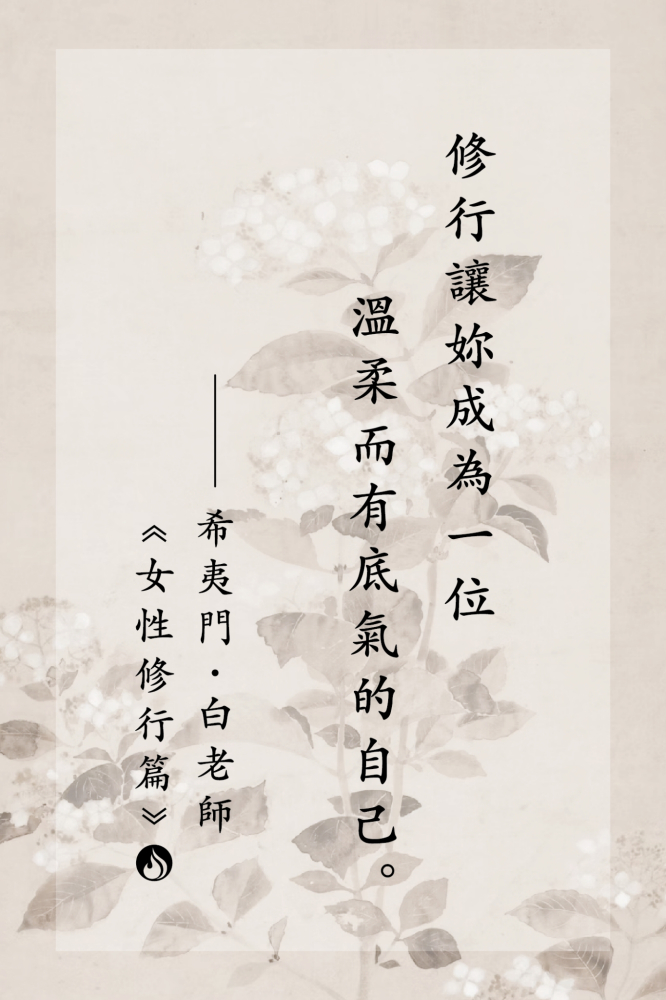 修行讓妳成為一位
溫柔而有底氣的自己。
——希夷門・白老師
《女性修行篇》